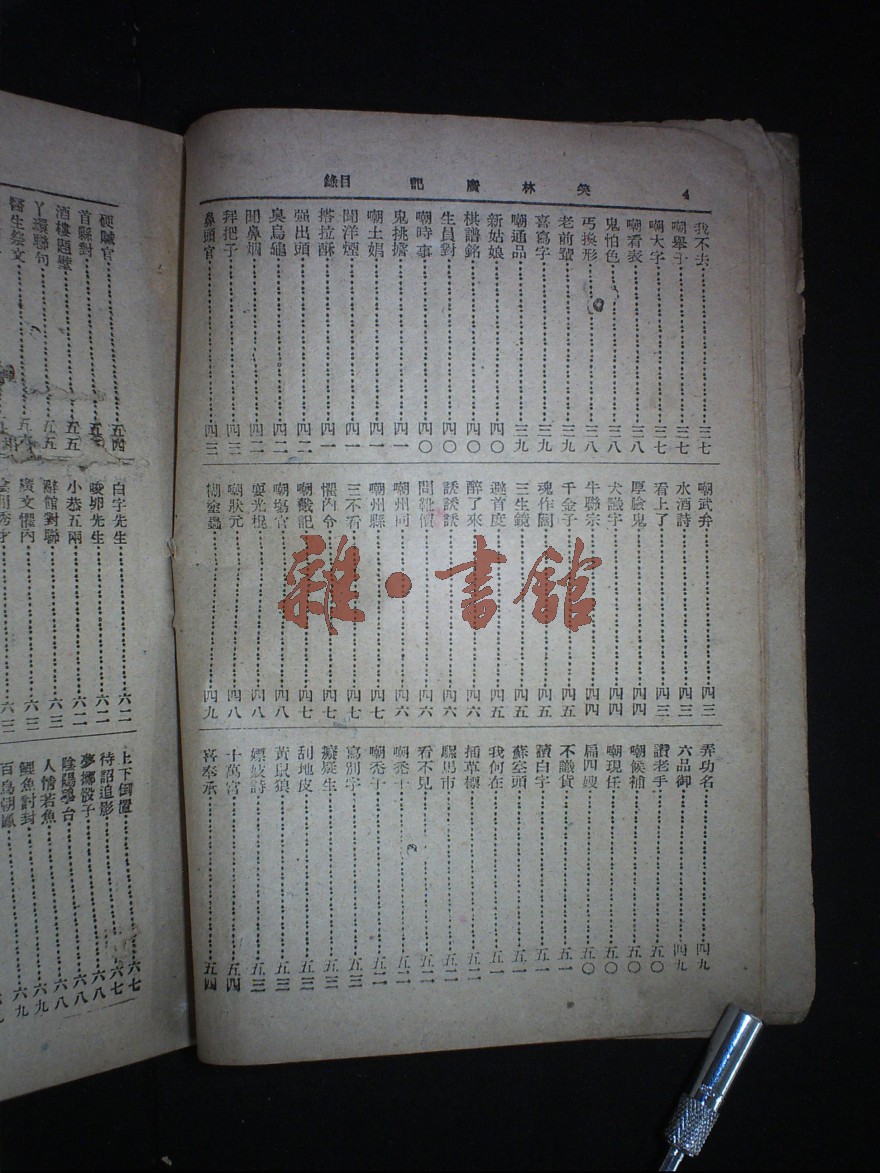 笑林廣記 目錄 4
我不去 三七
嘲舉十 三七
嘲大字 三七
嘲看表 三八
鬼怕色 三八
丐換形 三八
老前輩 三九
喜寫字 三九
嘲通品 三九
新姑娘 四〇
棋譜銘 四〇
生員對 四〇
嘲時事 四〇
鬼挑擔 四一
嘲土娼 四一
聞洋煙 四一
搭拉酥 四一
强出頭 四二
臭烏龜 四二
聞鼻烟 四二
拜把子 四三
鼻頭官 四三
嘲武弁 四三
水酒詩 四三
看上了 四三
厚臉鬼 四四
犬識字 四四
牛聯宗 四四
千金子 四五
魂作闊 四五
三生鏡 四五
遊首度 四五
醉了來 四六
誘誘誘 四六
問靴價 四六
嘲州同 四六
嘲州縣 四七
三不看 四七
懼內令 四七
嘲戲記 四七
嘲塲官 四八
耍光棍 四八
嘲狀元 四八
糊塗蟲 四九
弄功名 四九
六品御 四九
讚老手 五〇
嘲候補 五〇
嘲現任 五〇
扁四嫂 五〇
不識貨 五一
讀白字 五一
蘇空頭 五一
我何在 五一
插草標 五二
騾馬市 五二
看不見 五二
嘲禿十 五二
嘲禿十 五二
寫別字 五三
癡疑生 五三
刮地皮 五三
黃鼠狼 五三
嫖妓詩 五三
十萬宮 五四
喜奉承 五四
硬賊官 五四
首縣對
酒樓題壁 五五
丫環聯句 五五
醫生祭文
白字先生 六二
唆卵先生 六二
小恭五兩 六二
辭館對聯 六三
廣文懼內 六三
上下倒置 六七
待詔追影 六七
夢擲骰子 六八
陰陽學台 六八
人情若魚 六八
鯉魚討封 六九
百鳥朝鳳
雜·書館